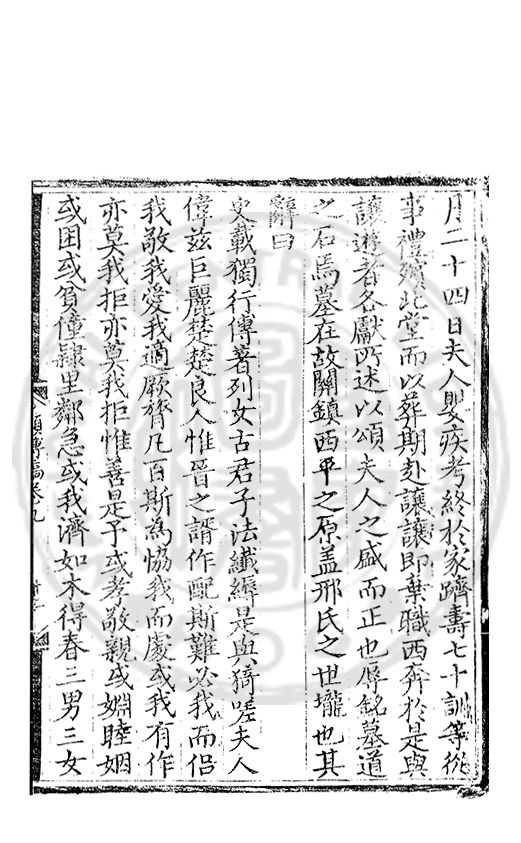 月二十四日夫人嬰疾考終於家躋壽七十訓等從
事禮殯北堂而以葬期赴讓讓即棄職西奔於是與
讓遊者各獻所述以頌夫人之盛而正也辱銘墓道
之石焉墓在故關鎮西平之原盖邢氏之世壠也其
辭曰
史載獨行傳著列女古君子法纖縟是與猗嗟夫人
偉兹巨麗楚楚良人惟晉之謂作配斯難必我而侣
我敬我愛我適厥膂凡百斯為恊我而處或我有作
亦莫我拒亦莫我拒惟善是予或孝敬親或婣睦姻
或困或貧僮隸里鄰急或我濟如木得春三男三女
傳稿卷九